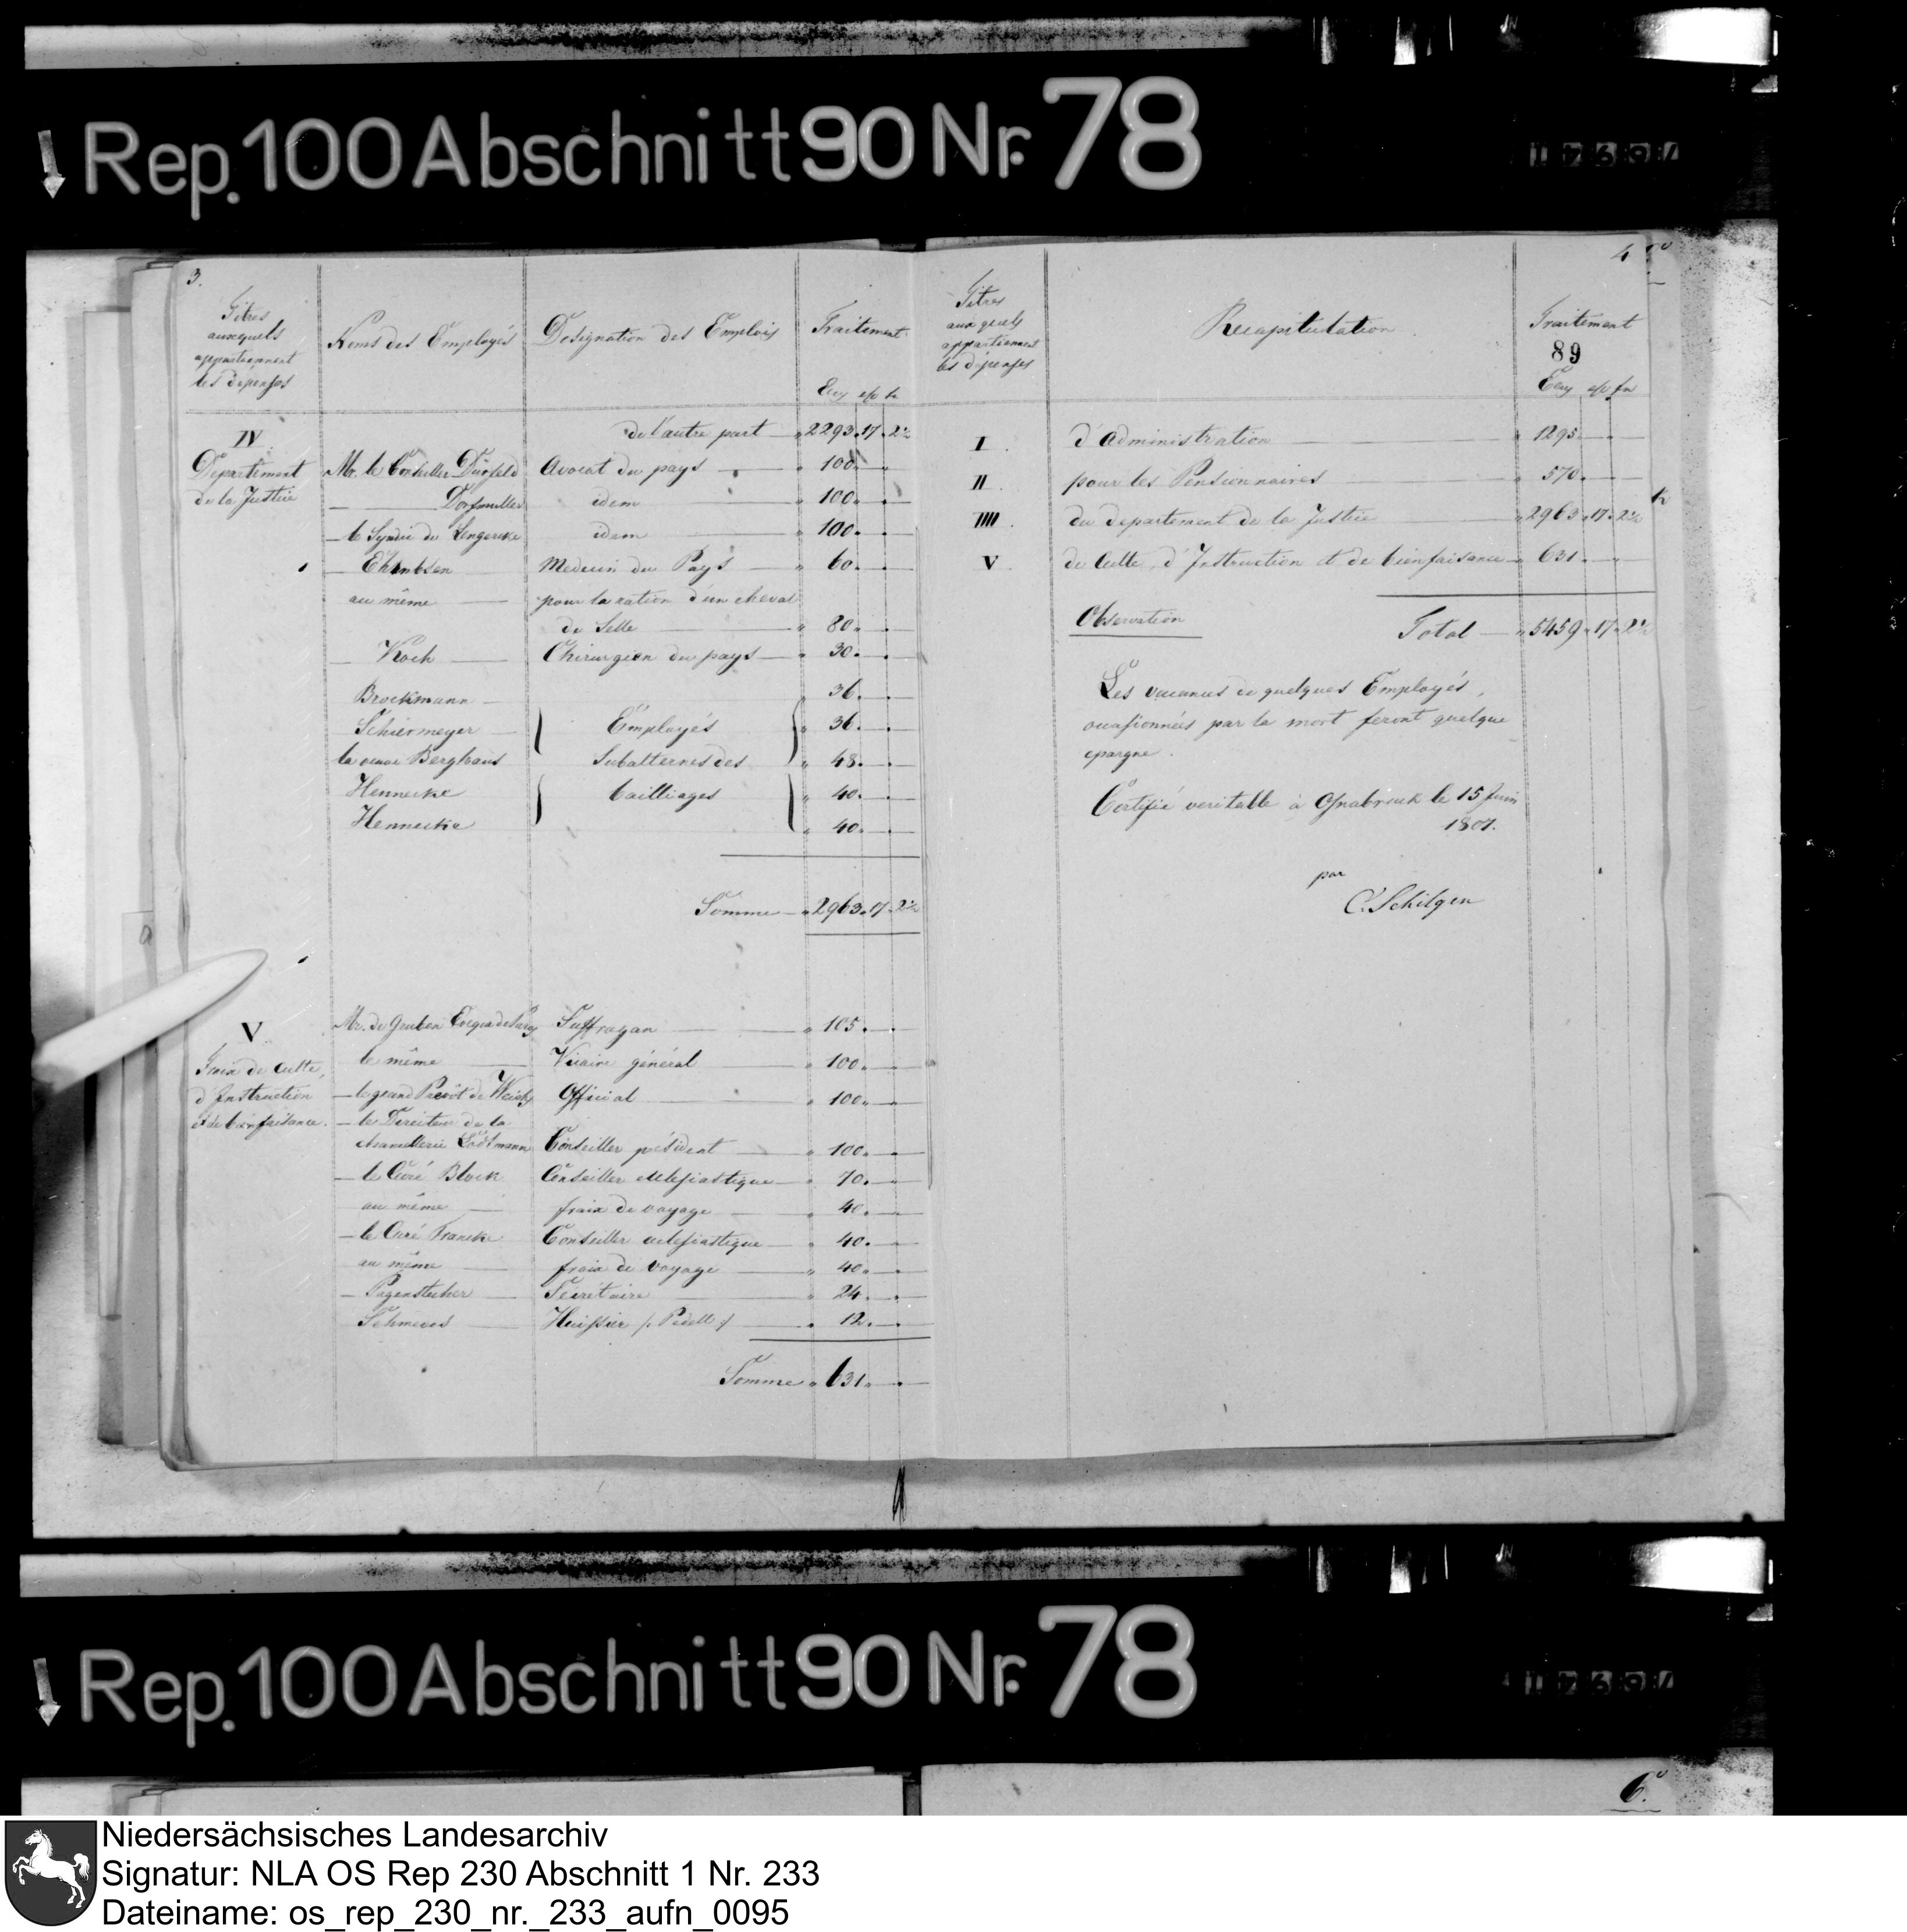 Rep. 100 Abschnitt 90 Nr. 78
3.
Titres
auxquels
appartiennent
les dépenses
Noms des Employés
Designation des Emplois
Traitement
Ecus
de l'autre part 2293. 17. 2½
IV
Departement
de la Justice
Mr. le Conseiller Dürfeld Avocat du pays 100.
Dorfmuller idem 100.
le Syndic de Lengercke idem 100.
Ehmbsen Medecin du Pays 60.
au même pour la ration d'un cheval
de Selle 80.
Koch Chirurgien du pays 30.
Brockmann 36.
Schiermeyer Employés 36.
la veuve Berghaus Subalternes des 48.
Hennecke bailliages 40.
Hennecke 40.
Somme 2963. 17. 2½
V
Frais de Culte,
d'Instruction
et de bienfaisance.
Mr. de Gruben Suffragan 105.
le même Vicaire général 100.
le grand Prevôt de Weichs Official 100.
le Directeur de la
chancellerie Lodtmann Conseiller président 100.
le Curé Block Conseiller ecclesiastique 70.
au même frais de voyage 40.
le Curé Francke Conseiller eclesiastique 40.
au même frais de voyage 40.
Pagenstecher Secretaire 24.
Huissier /: Pedell :/ 12.
Somme 631.
4
Titres
aux quels
appartiennent
les dépenses
Recapitulation
Traitement
89
Ecus
I d'administration 1295.
II. pour les Pensionnaires 570.
IIII. du departement de la Justice 2963. 17. 2½
V de Culte, d'Instruction et de bienfaisance 631.
Observation Total 5459. 17. 2½
Les vacances de quelques Employés,
occasionnées par la mort feront quelque
epargne.
Certifié veritable à Osnabruck le 15 Juin
1807.
par
C. Schilgen
Rep. 100 Abschnitt 90 Nr. 78
6.
Niedersächsisches Landesarchiv
Signatur: NLA OS Rep 230 Abschnitt 1 Nr. 233
Dateiname: os_rep_230_nr._233_aufn_0095